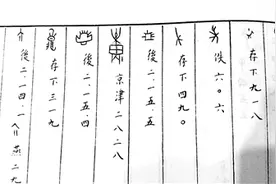 存下九一八
佚六〇六
存下四九〇
後二·一五·五
京津二八二八
後二·一五·四
存下三一九
後二·一四·一八 燕二九